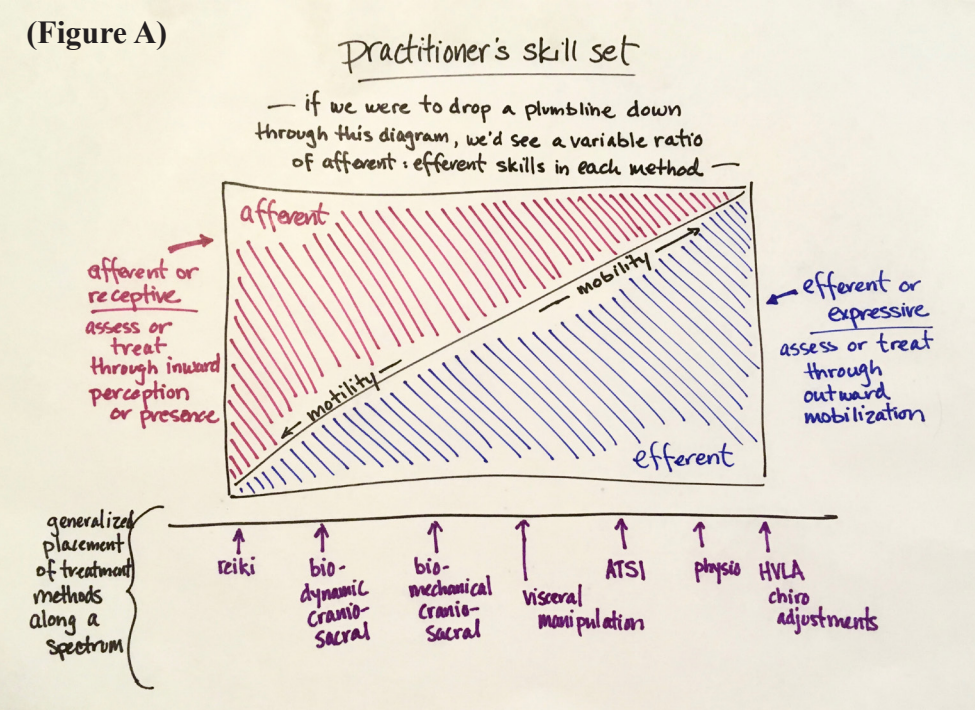 (Figure A)
Practitioner's skill set
— if we were to drop a plumbline down
through this diagram, we'd see a variable ratio
of afferent : efferent skills in each method —
afferent
afferent or
receptive
assess or
treat
through inward
perception
or presence
mobility
motility
efferent or
expressive
assess or treat
through
outward
mobilization
efferent
generalized
placement
of treatment
methods
along a
spectrum
reiki
bio-
dynamic
cranio-
sacral
bio-
mechanical
cranio-
sacral
visceral
manipulation
ATSI
physio
HVLA
chiro
adjustments